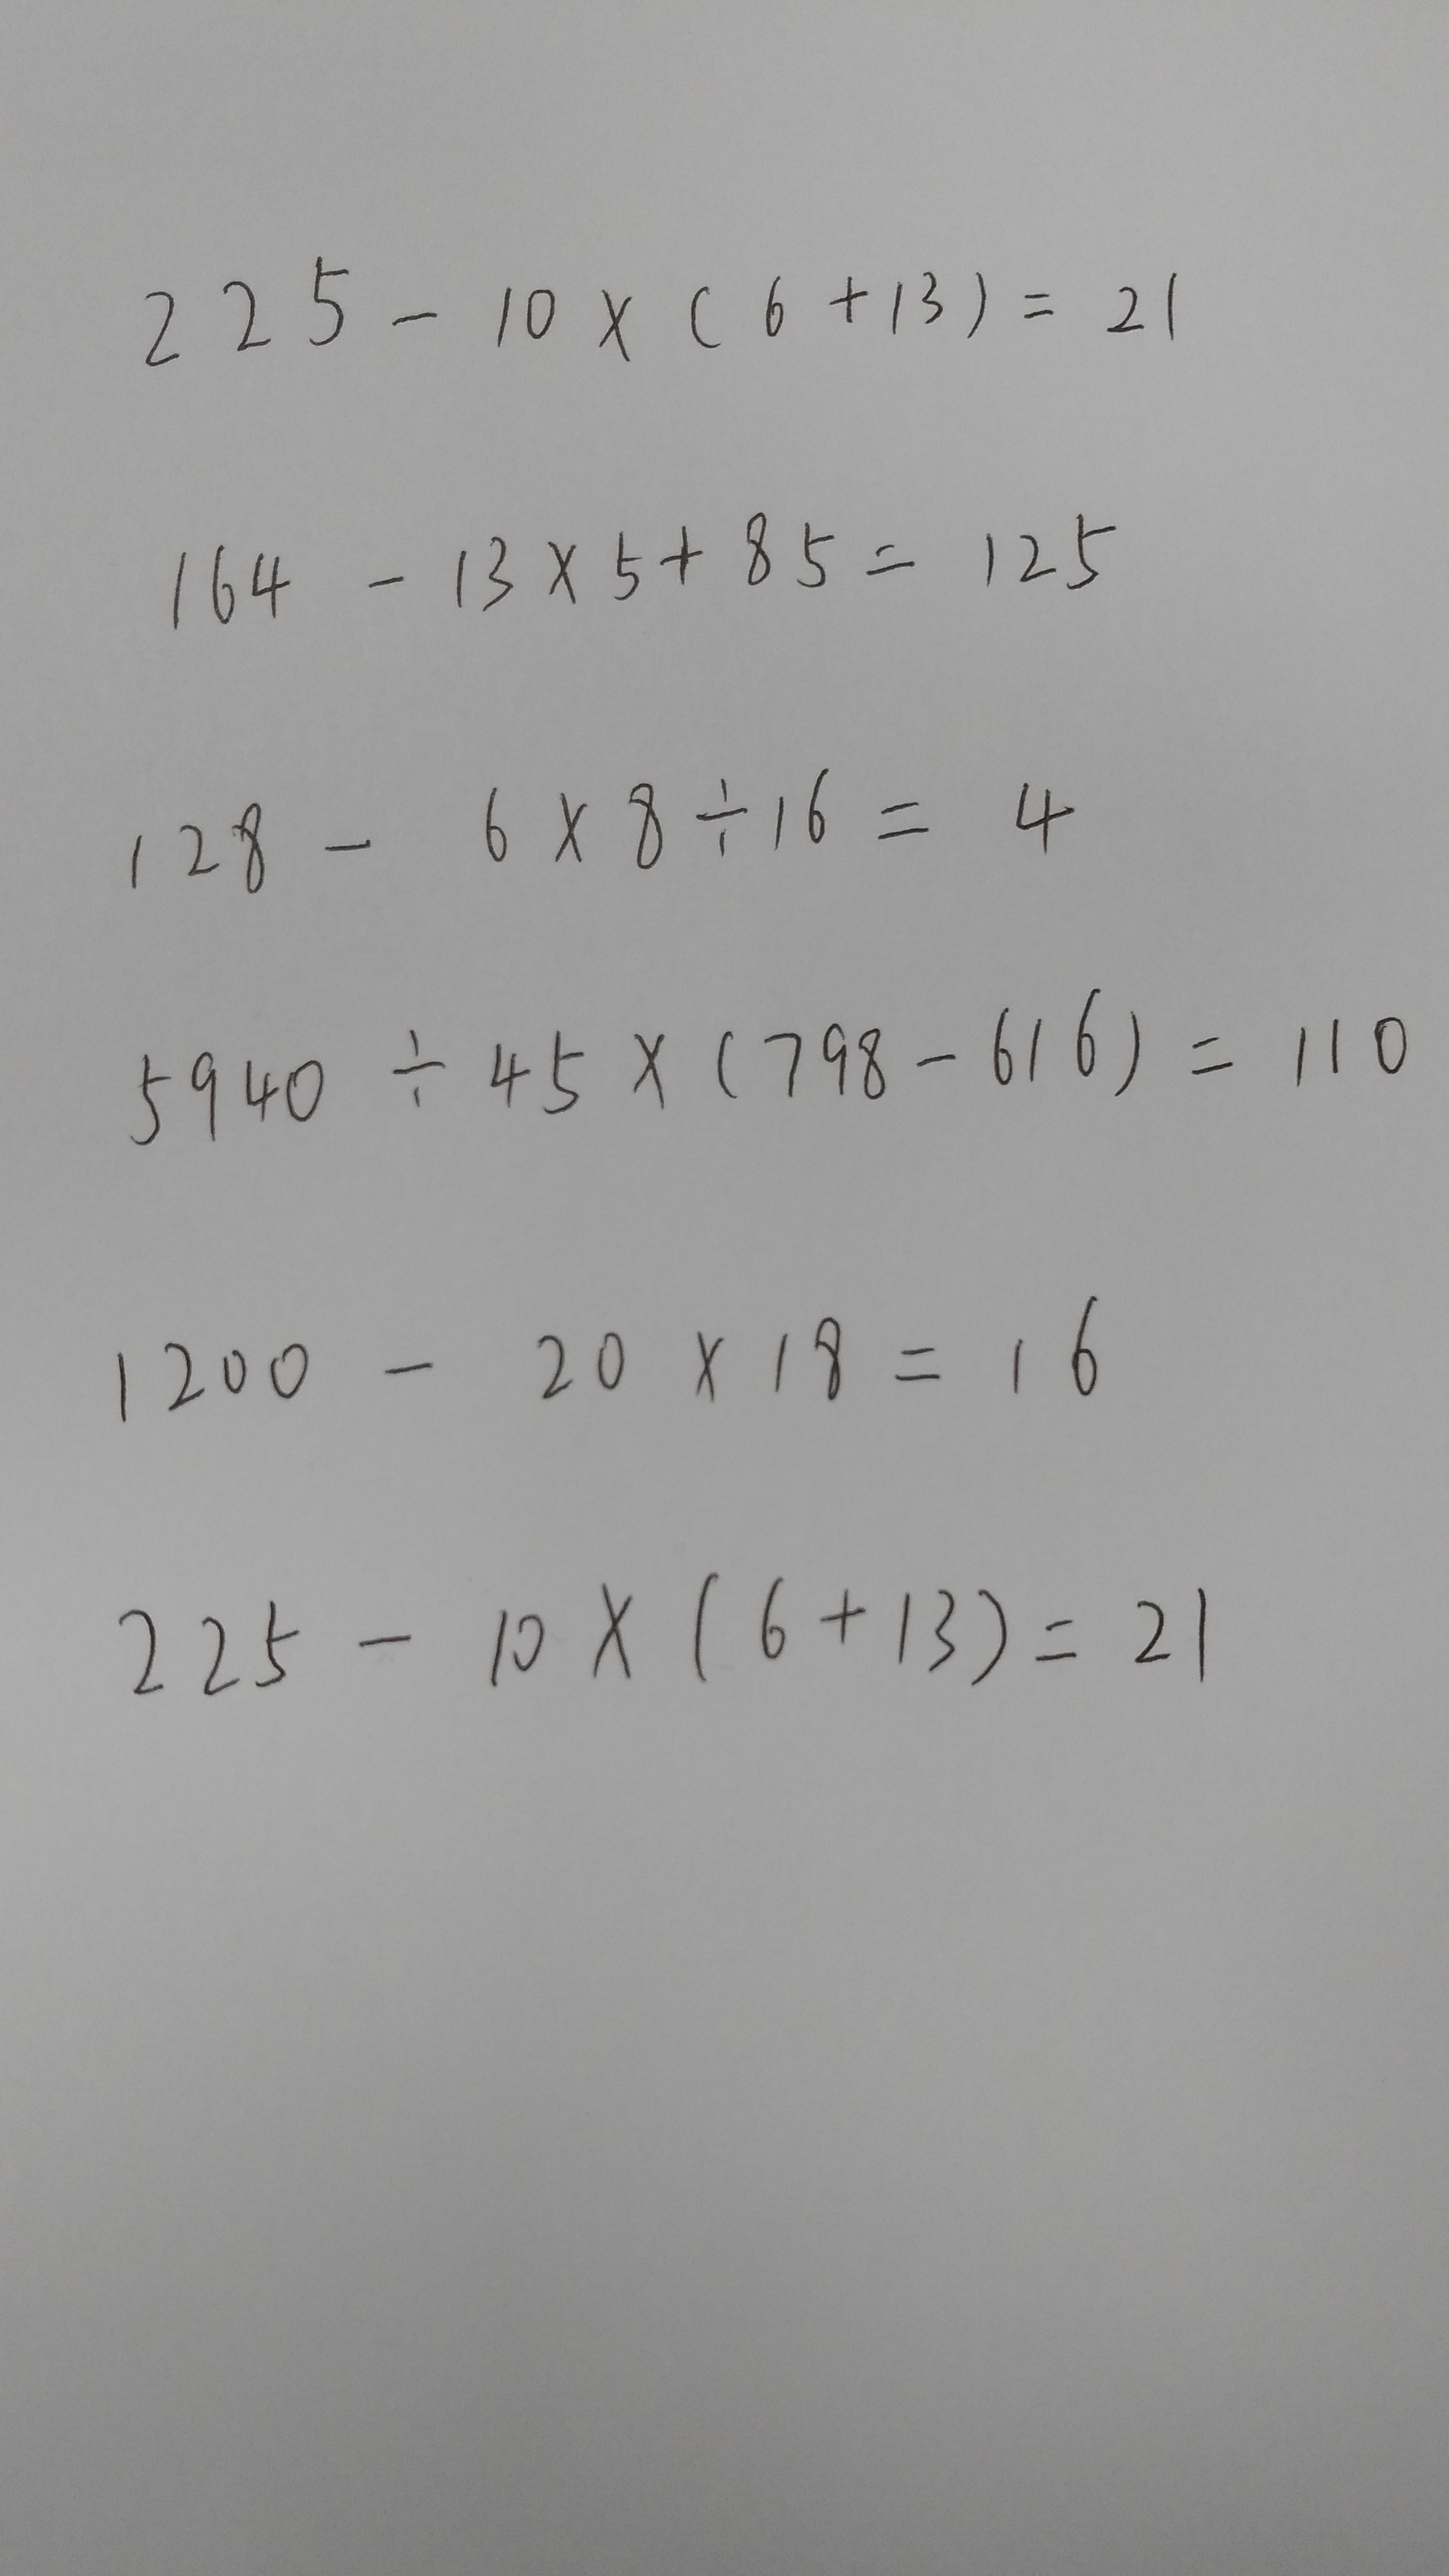 225 - 10 × (6 + 13) = 21
164 - 13 × 5 + 85 = 125
128 - 6 × 8 ÷ 16 = 4
5940 ÷ 45 × (798 - 616) = 110
1200 - 20 × 18 = 16
225 - 10 × (6 + 13) = 21